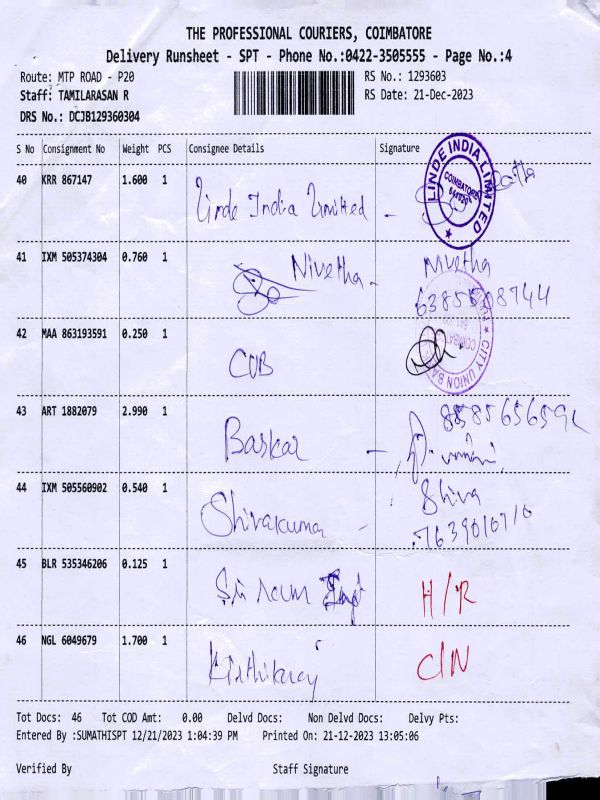 THE PROFESSIONAL COURIERS, COIMBATORE
Delivery Runsheet - SPT - Phone No.:0422-3505555 - Page No.:4
Route: MTP ROAD - P20 RS No.: 1293603
Staff: TAMILARASAN R RS Date: 21-Dec-2023
DRS No.: DCJB129360304
S No Consignment No Weight PCS Consignee Details Signature
40 KRR 867147 1.600 1 Linde India Limited -
LINDE INDIA LIMITED
COIMBATORE
41 IXM 505374304 0.760 1 Nivetha - Nivetha
42 MAA 863193591 0.250 1 CUB
CITY UNION BA
43 ART 1882079 2.990 1 Baskar -
44 IXM 505560902 0.540 1 Shivakumar - Shiva
7639010710
45 BLR 535346206 0.125 1 Sri Ram H/R
46 NGL 6049679 1.700 1 Kirthikaraj C/N
Tot Docs: 46 Tot COD Amt: 0.00 Delvd Docs: Non Delvd Docs: Delvy Pts:
Entered By :SUMATHISPT 12/21/2023 1:04:39 PM Printed On: 21-12-2023 13:05:06
Verified By Staff Signature